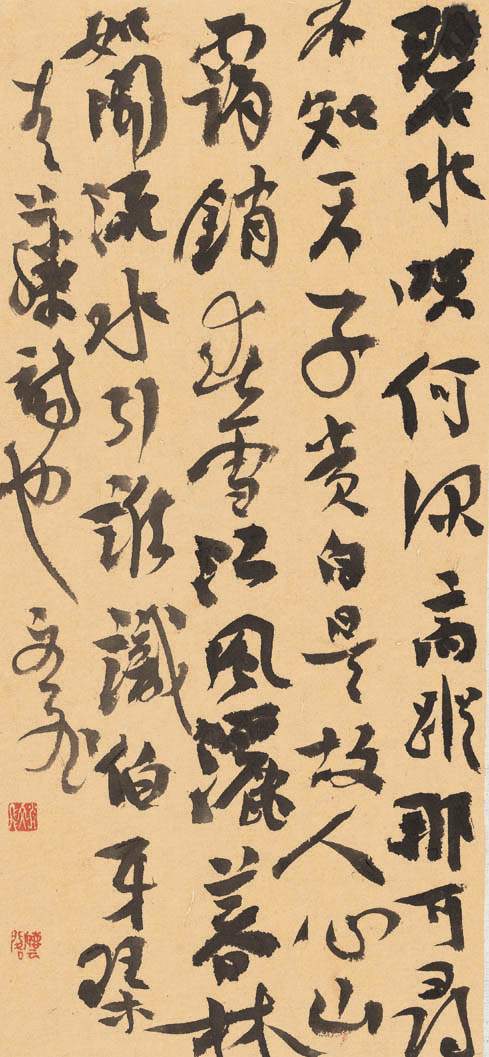 碧水映何深高蹤那可尋
不知天子貴自是故人心山
靄銷春雪江風灑暮林
如聞流水引誰識伯牙琴
詩也